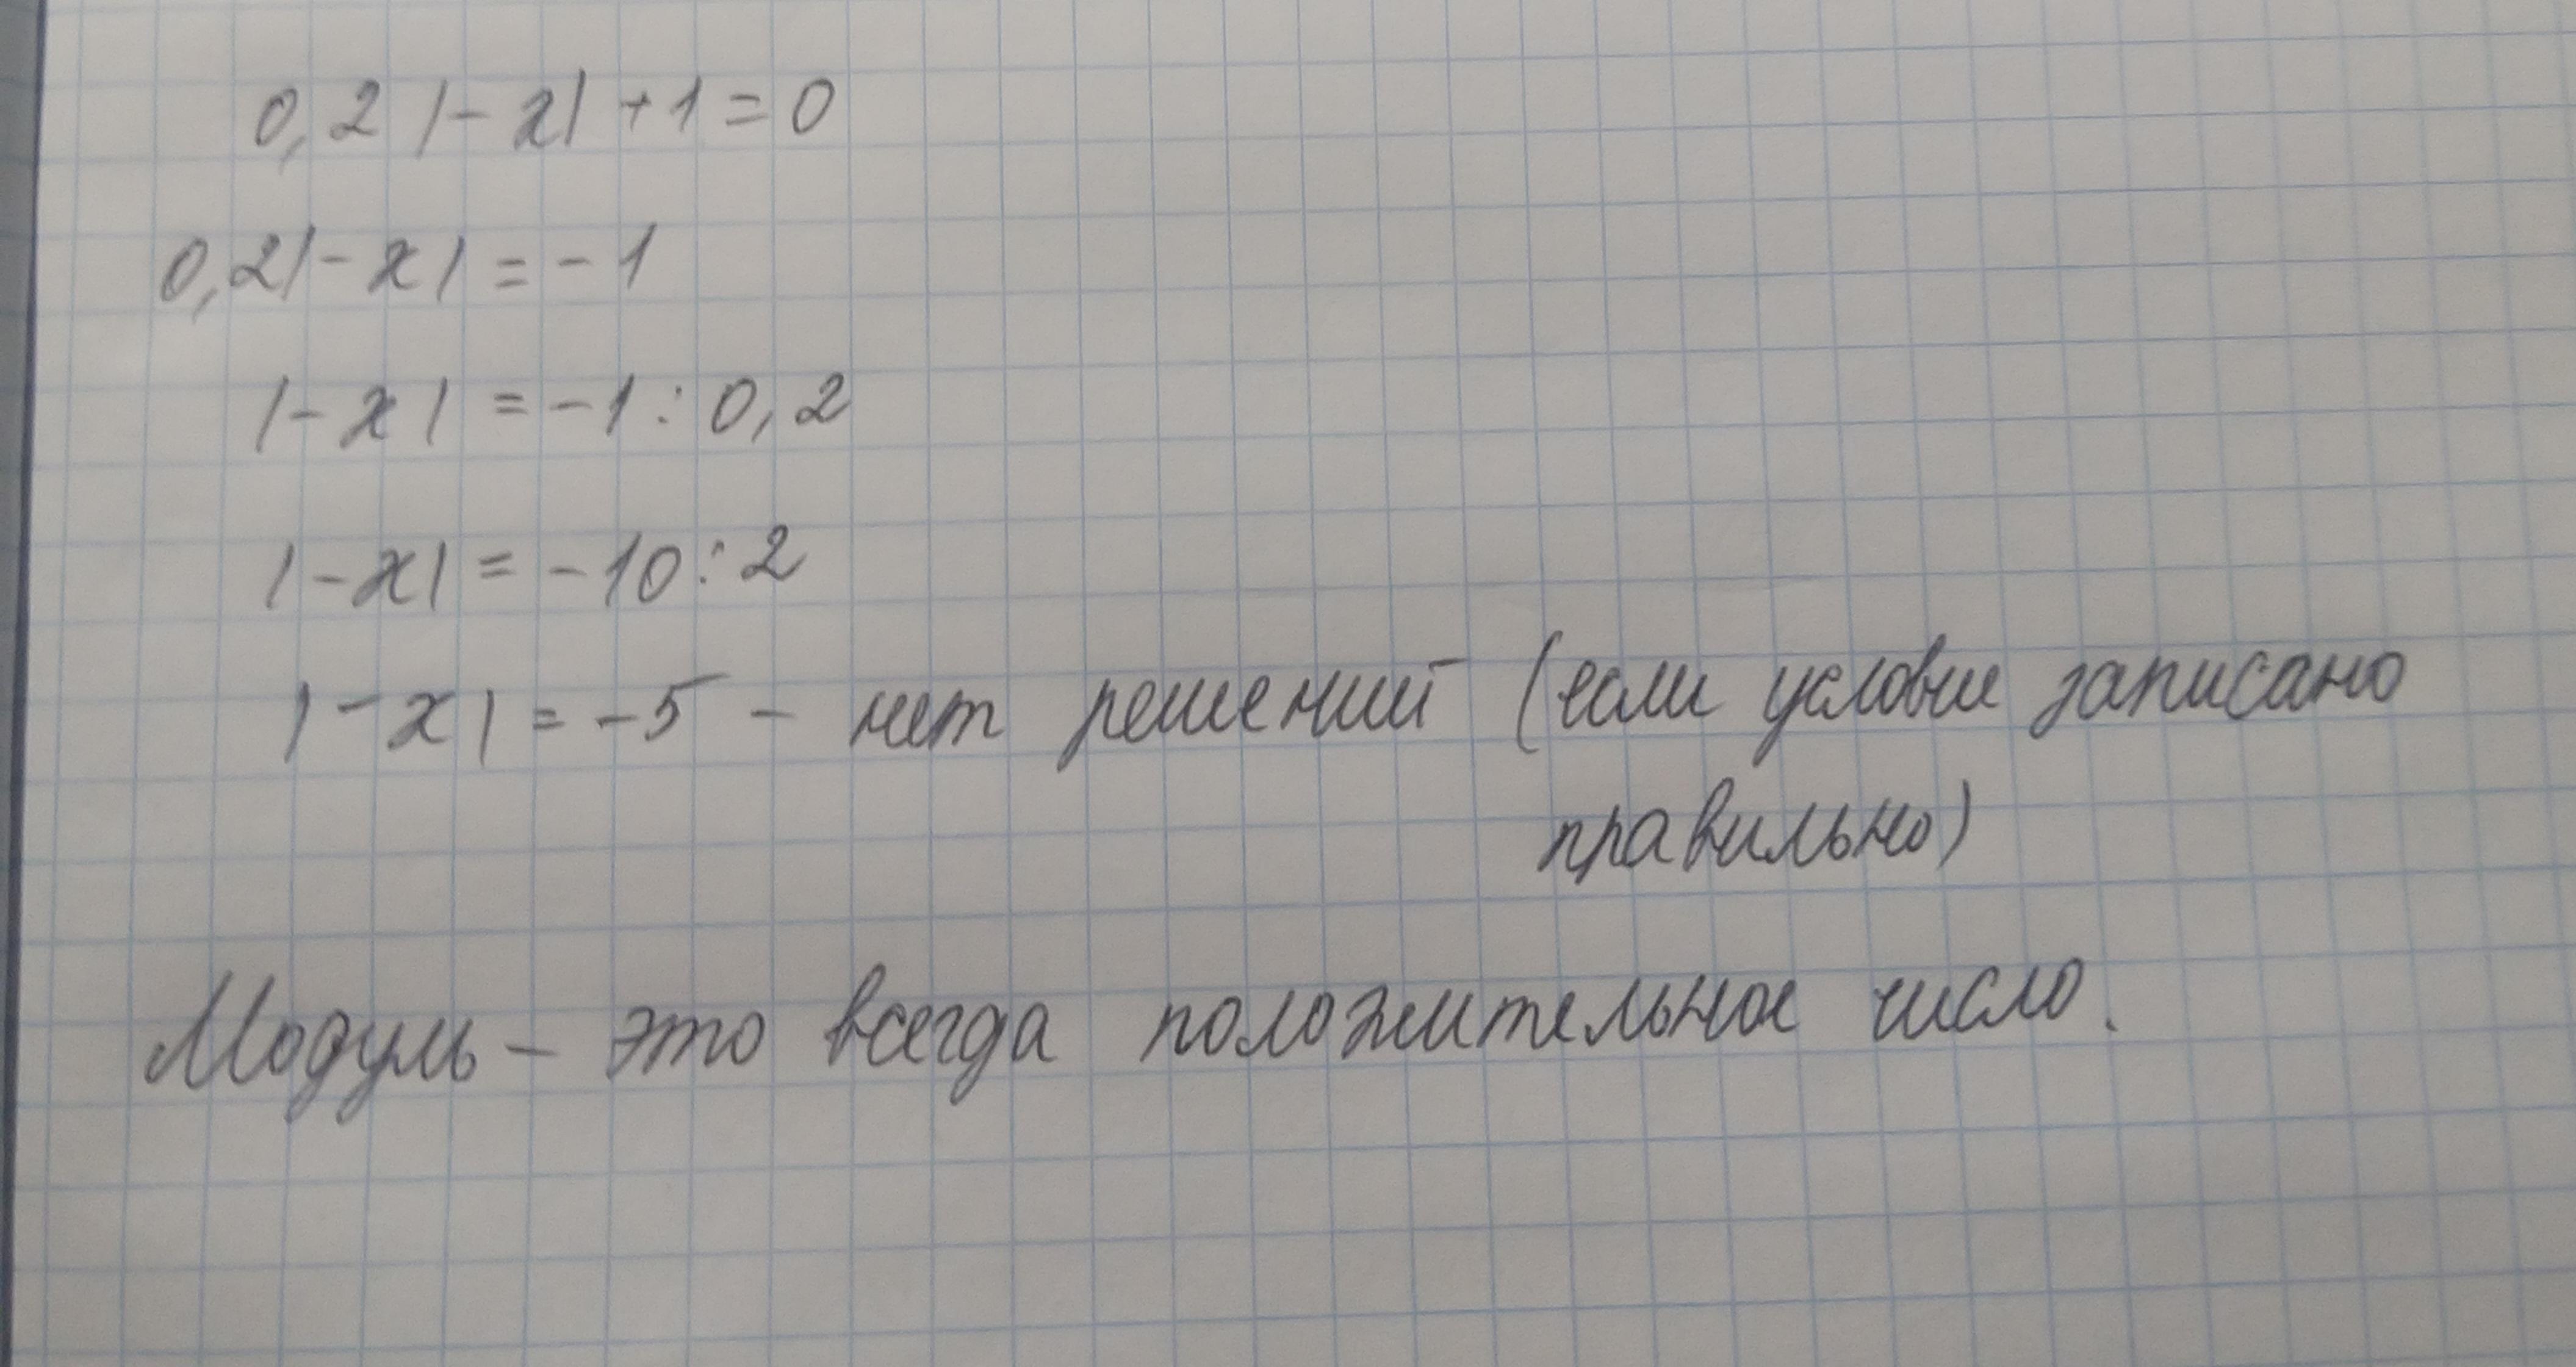 0,2 |-x| + 1 = 0
0,2|-x| = -1
|-x| = -1 : 0,2
|-x| = -10 : 2
|-x| = -5 - нет решений (если условие записано
правильно)
Модуль - это всегда положительное число.